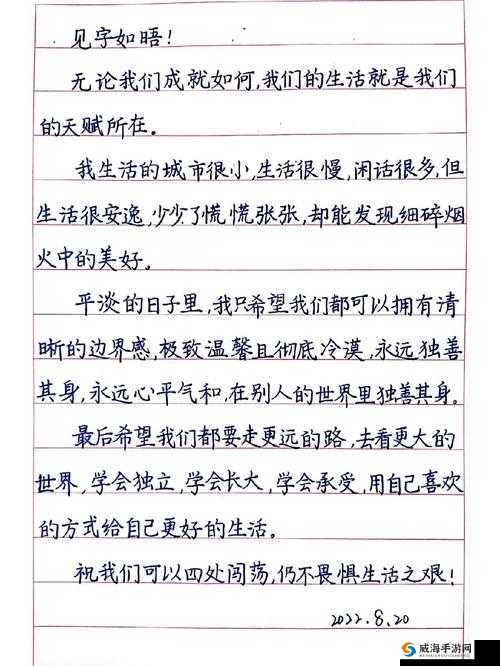 见字如晤！
无论我们成就如何，我们的生活就是我们
的天赋所在。
我生活的城市很小，生活很慢，闲话很多，但
生活很安逸，少少了慌慌张张，却能发现细碎烟
火中的美好。
平淡的日子里，我只希望我们都可以拥有清
晰的边界感，极致温馨且彻底冷漠，永远独善
其身，永远心平气和，在别人的世界里独善其身。
最后希望我们都要走更远的路，去看更大的
世界，学会独立，学会长大，学会承受，用自己喜欢
的方式给自己更好的生活。
祝我们可以四处闯荡，仍不畏惧生活之艰！
2022.8.20
威海手游网